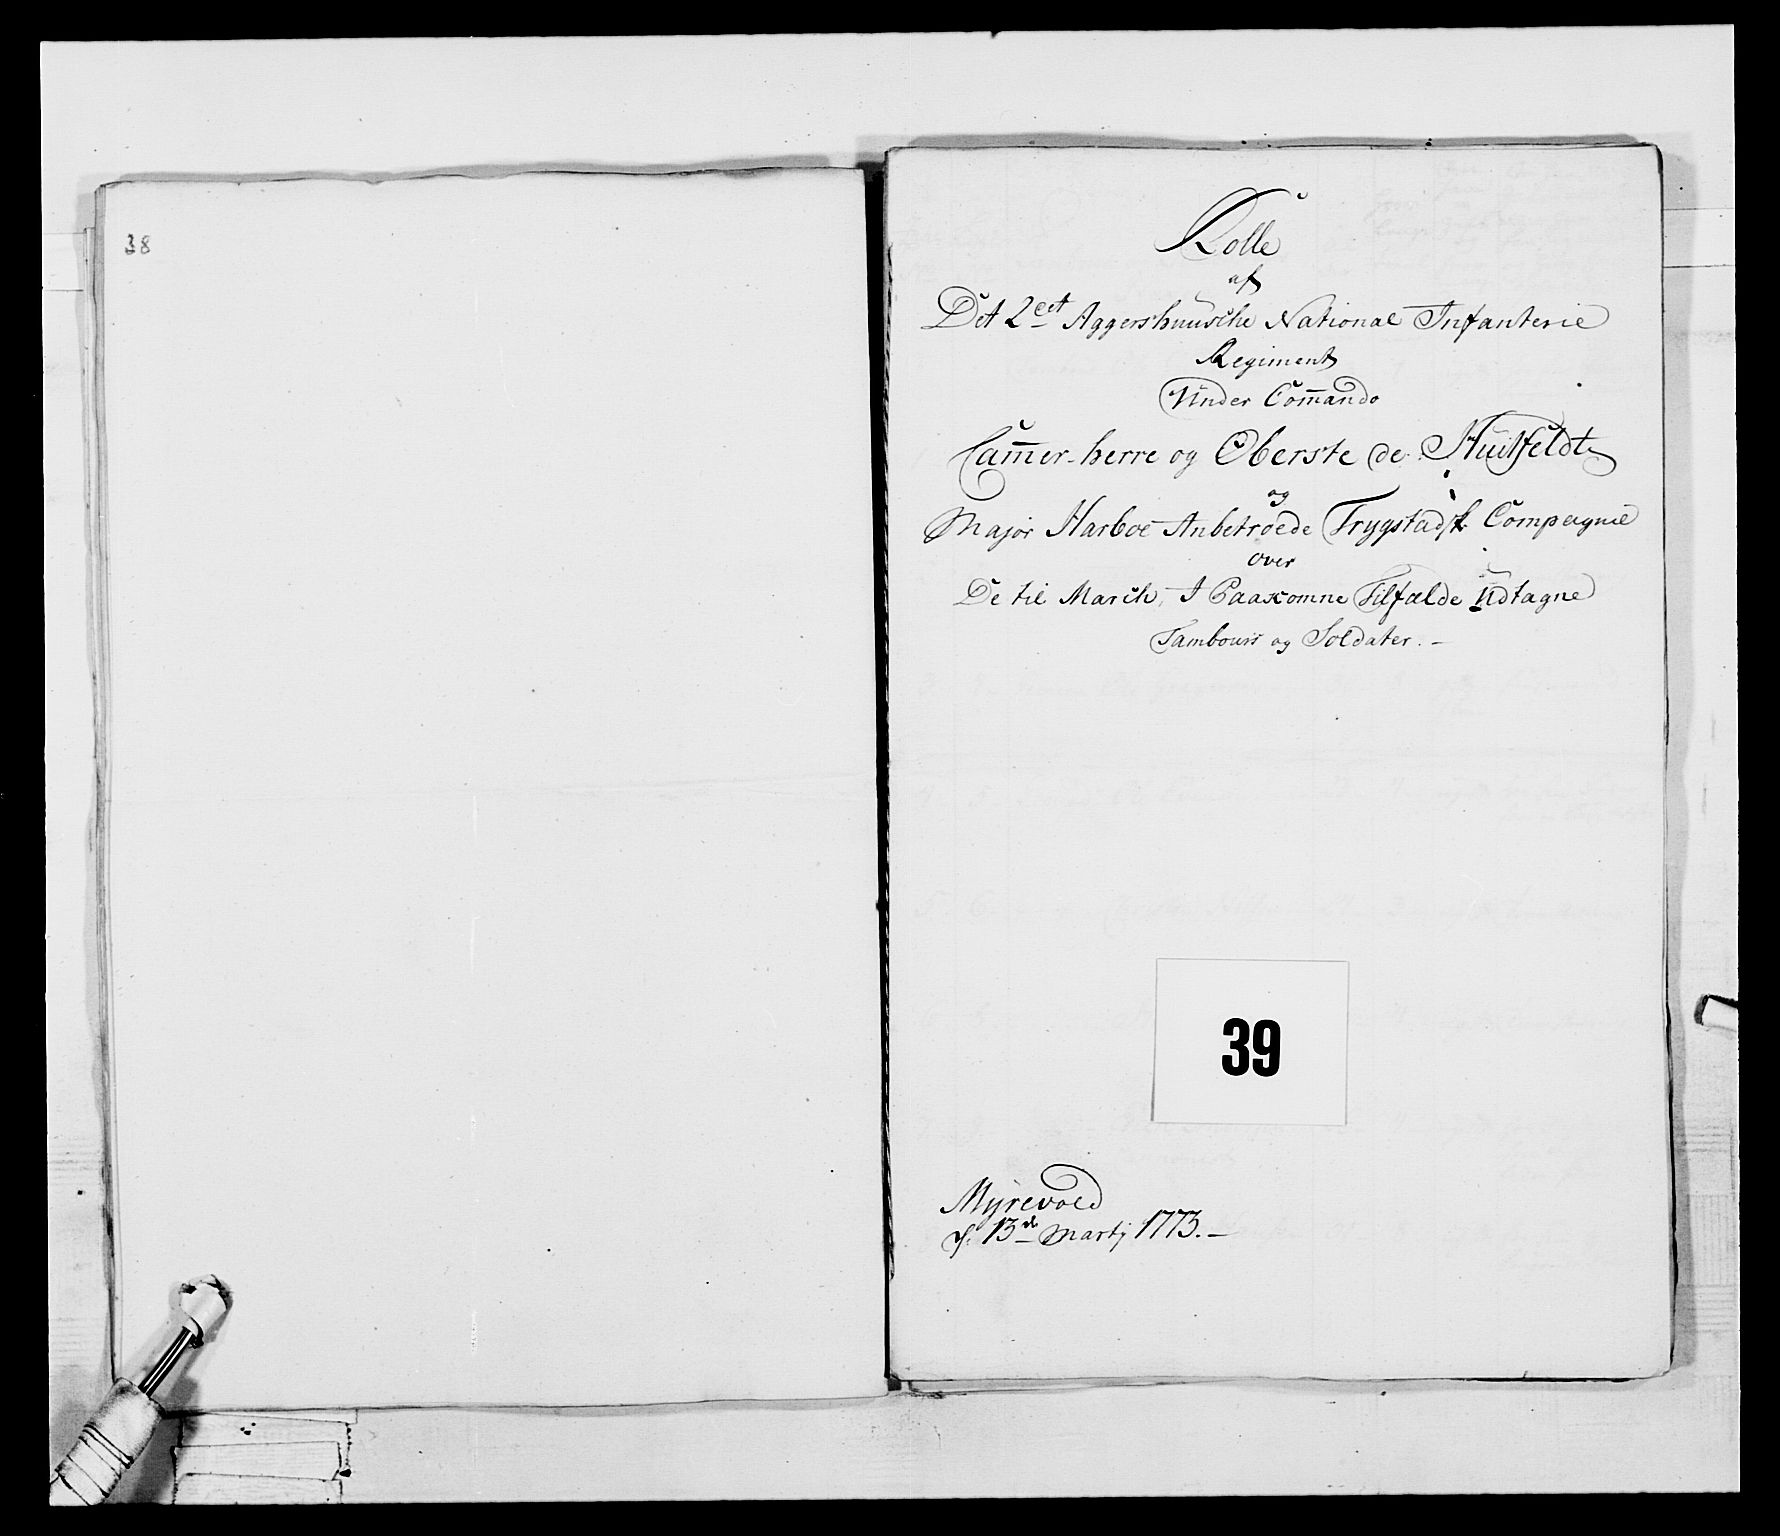 38
Rolle
af
Det 2det Aggershuusche National Infanterie
Regiment
Under Com̄ando
Cam̄er-herre og Oberste de Huitfeldt
og
Major Harboe Anbetroede Trygstadsk Compagnie
over
De til March, I Paakomne Tilfælde Udtagne
Tambours og Soldater. -
39
Myrevold
d: 13de Martj 1773. -